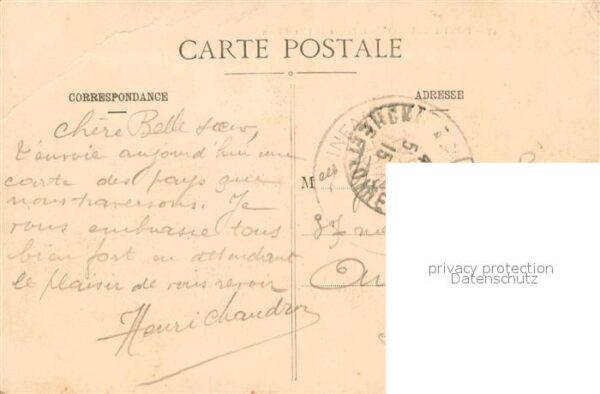 CARTE POSTALE
CORRESPONDANCE
ADRESSE
Chère Belle sœur,
t'envoie aujourd'hui une
carte des pays que
nous traversons. Je
vous embrasse tous
bien fort en attendant
le plaisir de vous revoir
Henri Chaudron
Melle
37 rue
privacy protection
Datenschutz